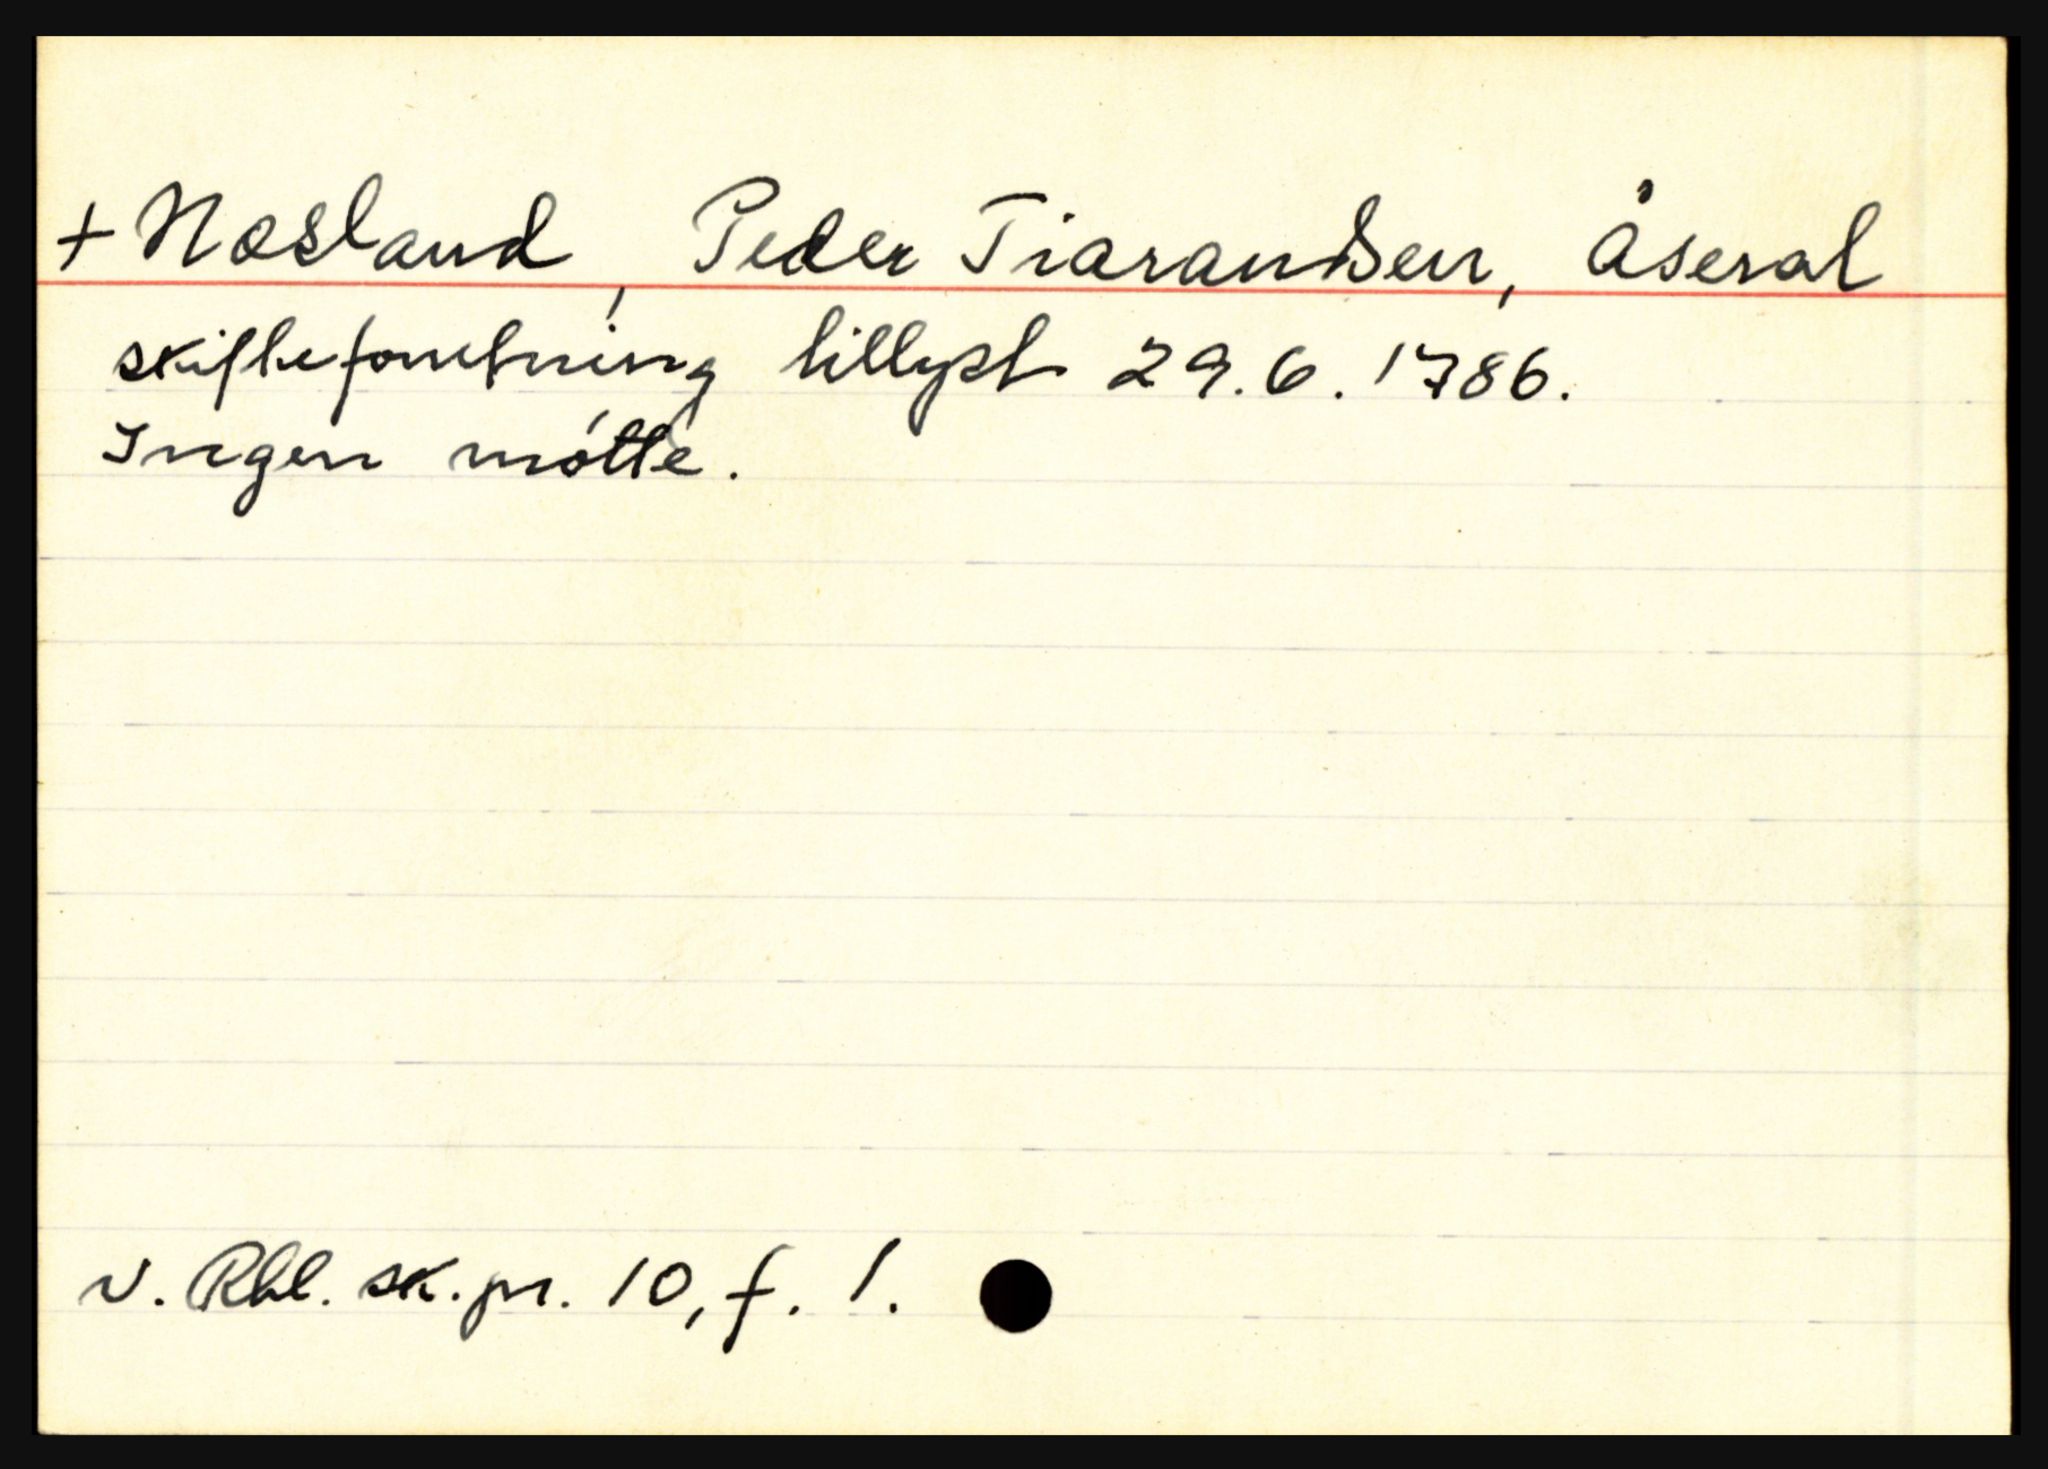 + Nosland, Peder Tiarandsen, Åseral
skifteforretning tillyst 29.6.1786.
Ingen møtte.
v. Rbl. sk.pr. 10, f. 1.